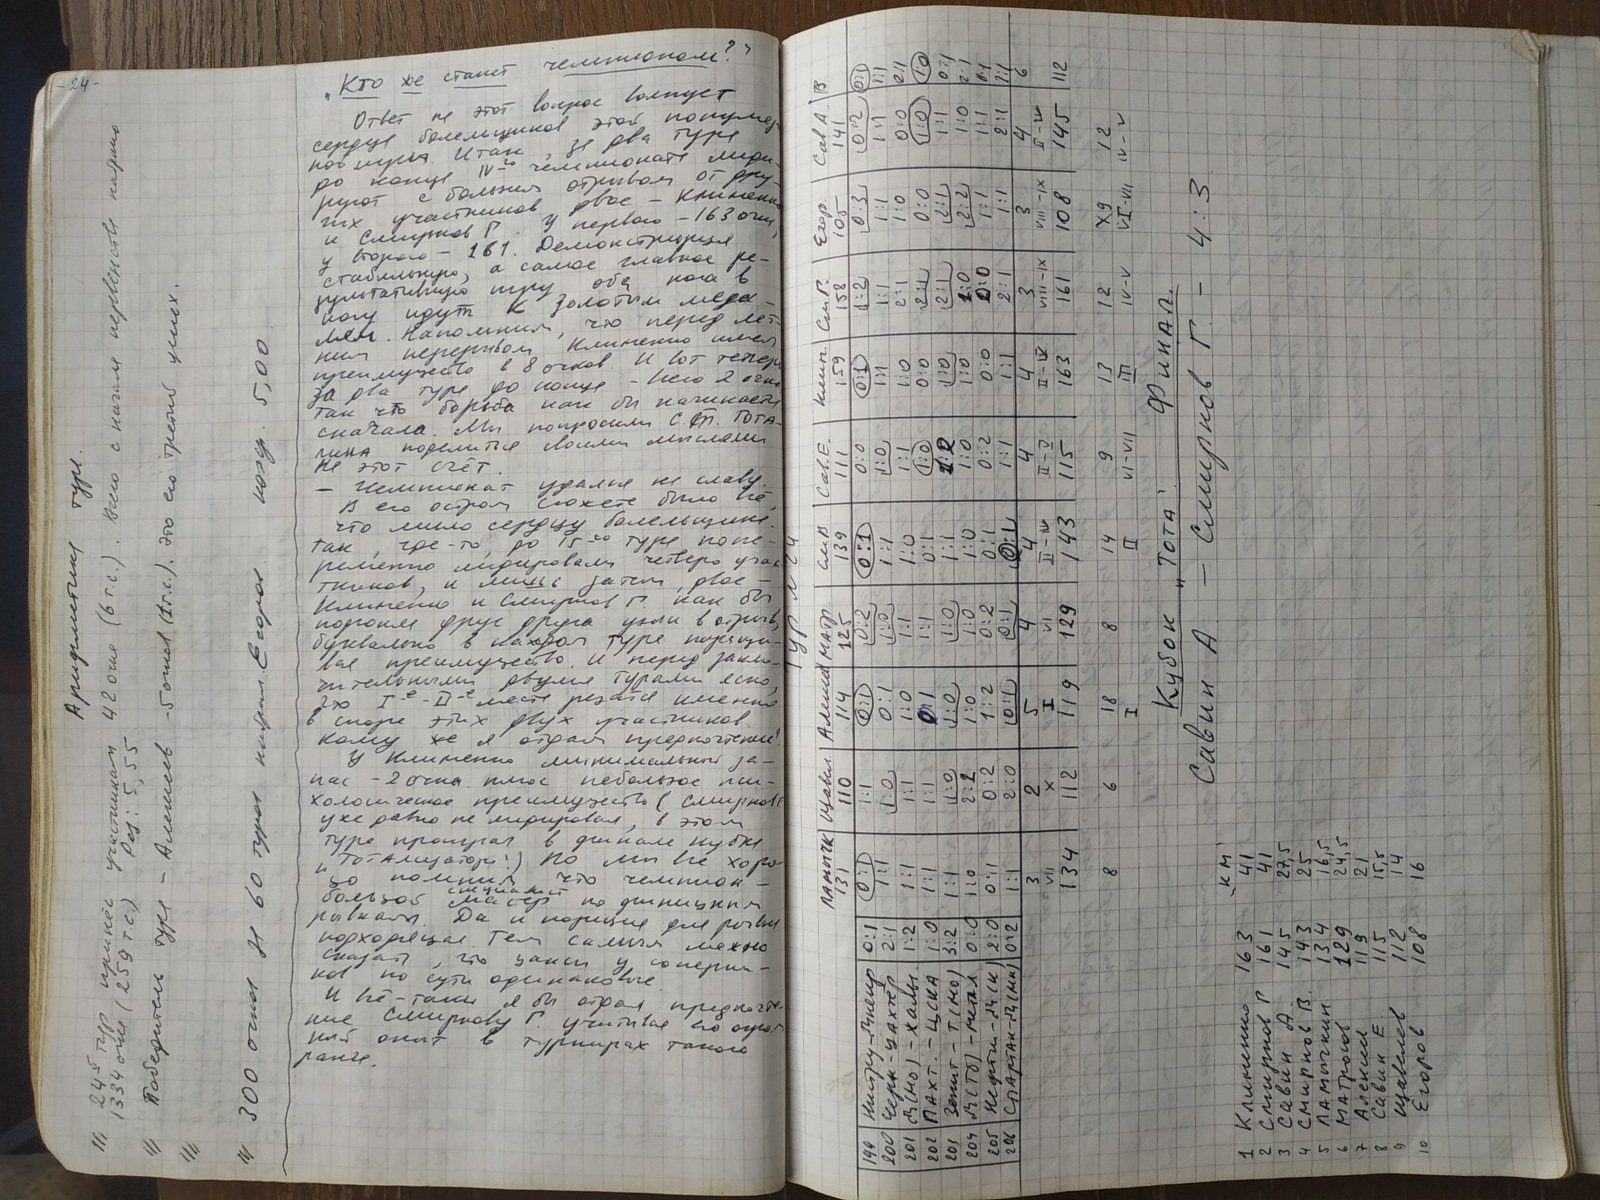 - 24 -
Арифметика тура.
24й тур принёс участникам 42 очка (6 г.с.). Всего с начала первенства набрано
1334 очка (259 г.с.) Рез: 5,55
Победитель тура - Алешин - 5 очков (1 г.с.). Это его третий успех.
300 очков из 60 туров набрал Егоров коэф. 5,00
"Кто же станет чемпионом?"
Ответ на этот вопрос волнует
сердце болельщиков этой популяр-
ной игры. Итак, за два тура
до конца IV-го чемпионата лиди-
руют с большим отрывом от дру-
гих участников двое - Клименко
и Смирнов Г. У первого - 163 очка,
у второго - 161. Демонстрируя
стабильную, а самое главное ре-
зультативную игру оба нога в
ногу идут к золотым меда-
лям. Напомним, что перед лет-
ним перерывом Клименко имел
преимущество в 8 очков. И вот теперь
за два тура до конца - всего 2 очка
так что борьба как бы начинается
сначала. Мы попросили С.П. Тота-
поделиться своими мыслями
на этот счёт.
- Чемпионат удался на славу.
В его остром сюжете было всё,
что мило сердцу болельщика.
Так, где-то, до 15го тура попе-
ременно лидировали четверо учас-
тников, и лишь затем двое -
Клименко и Смирнов Г. как бы
подгоняя друг друга ушли в отрыв,
буквально в каждом туре наращи-
вая преимущество. И перед заклю-
чительными двумя турами ясно,
что I-е - II-е места решатся именно
в споре этих двух участников.
Кому же я отдам предпочтение?
У Клименко минимальный за-
пас - 2 очка плюс небольшое пси-
хологическое преимущество (Смирнов Г.
уже давно не лидировал, в этом
туре проиграл в финале кубка
и "ТОТАлизатора"!) Но мы все хоро-
шо помним, что чемпион -
большой специалист по финишным
рывкам. Да и позиция для рывка
подходящая. Тем самым можно
сказать, что шансы у соперни-
ков по сути одинаковые.
И всё-таки я бы отдал предпочте-
ние Смирнову Г. учитывая его огром-
ный опыт в турнирах такого
ранга.
Тур № 24
Ламычк Щавел Алеши Матр. См.В Сав.Е. Клим. См.Г. Егор. Сав А. В
131 110 114 125 139 111 159 158 105 141
199 Нистру-Днепр 0:1 0:1 1:1 0:1 0:2 0:1 0:0 0:1 1:2 0:3 0:2 0:1
200 Черн-Шахтёр 2:1 1:1 1:0 0:1 1:0 1:1 1:0 1:1 1:1 1:1 1:1 1:1
201 Д(Мо)-Хазлы 1:2 1:1 1:1 1:0 1:1 1:0 1:1 1:0 2:1 1:0 0:0 2:1
202 Пахт.-ЦСКА 1:0 1:1 1:1 0:1 1:1 0:1 1:0 0:0 2:1 0:0 1:0 1:0
203 Зенит-Т(Мо) 3:2 1:1 1:0 1:0 1:0 1:1 1:2 1:0 2:1 2:1 1:1 0:1
204 Д(Тб)-метал 0:0 1:0 2:2 1:0 1:0 1:0 1:0 1:0 1:0 2:2 1:0 2:1
205 Нефтчи-Д(К) 2:0 0:1 0:2 1:2 0:2 0:1 0:2 0:0 0:0 1:1 1:1
206 Спартак-Д(Мн) 0:2 1:1 2:0 0:1 0:1 0:1 1:1 1:1 2:1 1:1 2:1
3 2 5 4 4 4 4 3 3 4 6
VII X I VI II-IV II-V II-IV VIII-IX VIII-IX II-IV
134 112 119 129 143 115 163 161 108 145 112
8 6 18 8 14 9 13 12 9 12
I II VI-VII III IV-V VI-VII IV-V
Кубок "Тота". Финал.
Савин А. - Смирнов Г. - 4:3
"КМ"
1 Клименко 163 41
2 Смирнов Г 161 41
3 Савин А. 145 27,5
4 Смирнов В. 143 25
5 Ламычкин 134 16,5
6 Матросов 129 24,5
7 Алешин 119 21
8 Савин Е. 115 15,5
9 Щавелев 112 14
10 Егоров 108 16